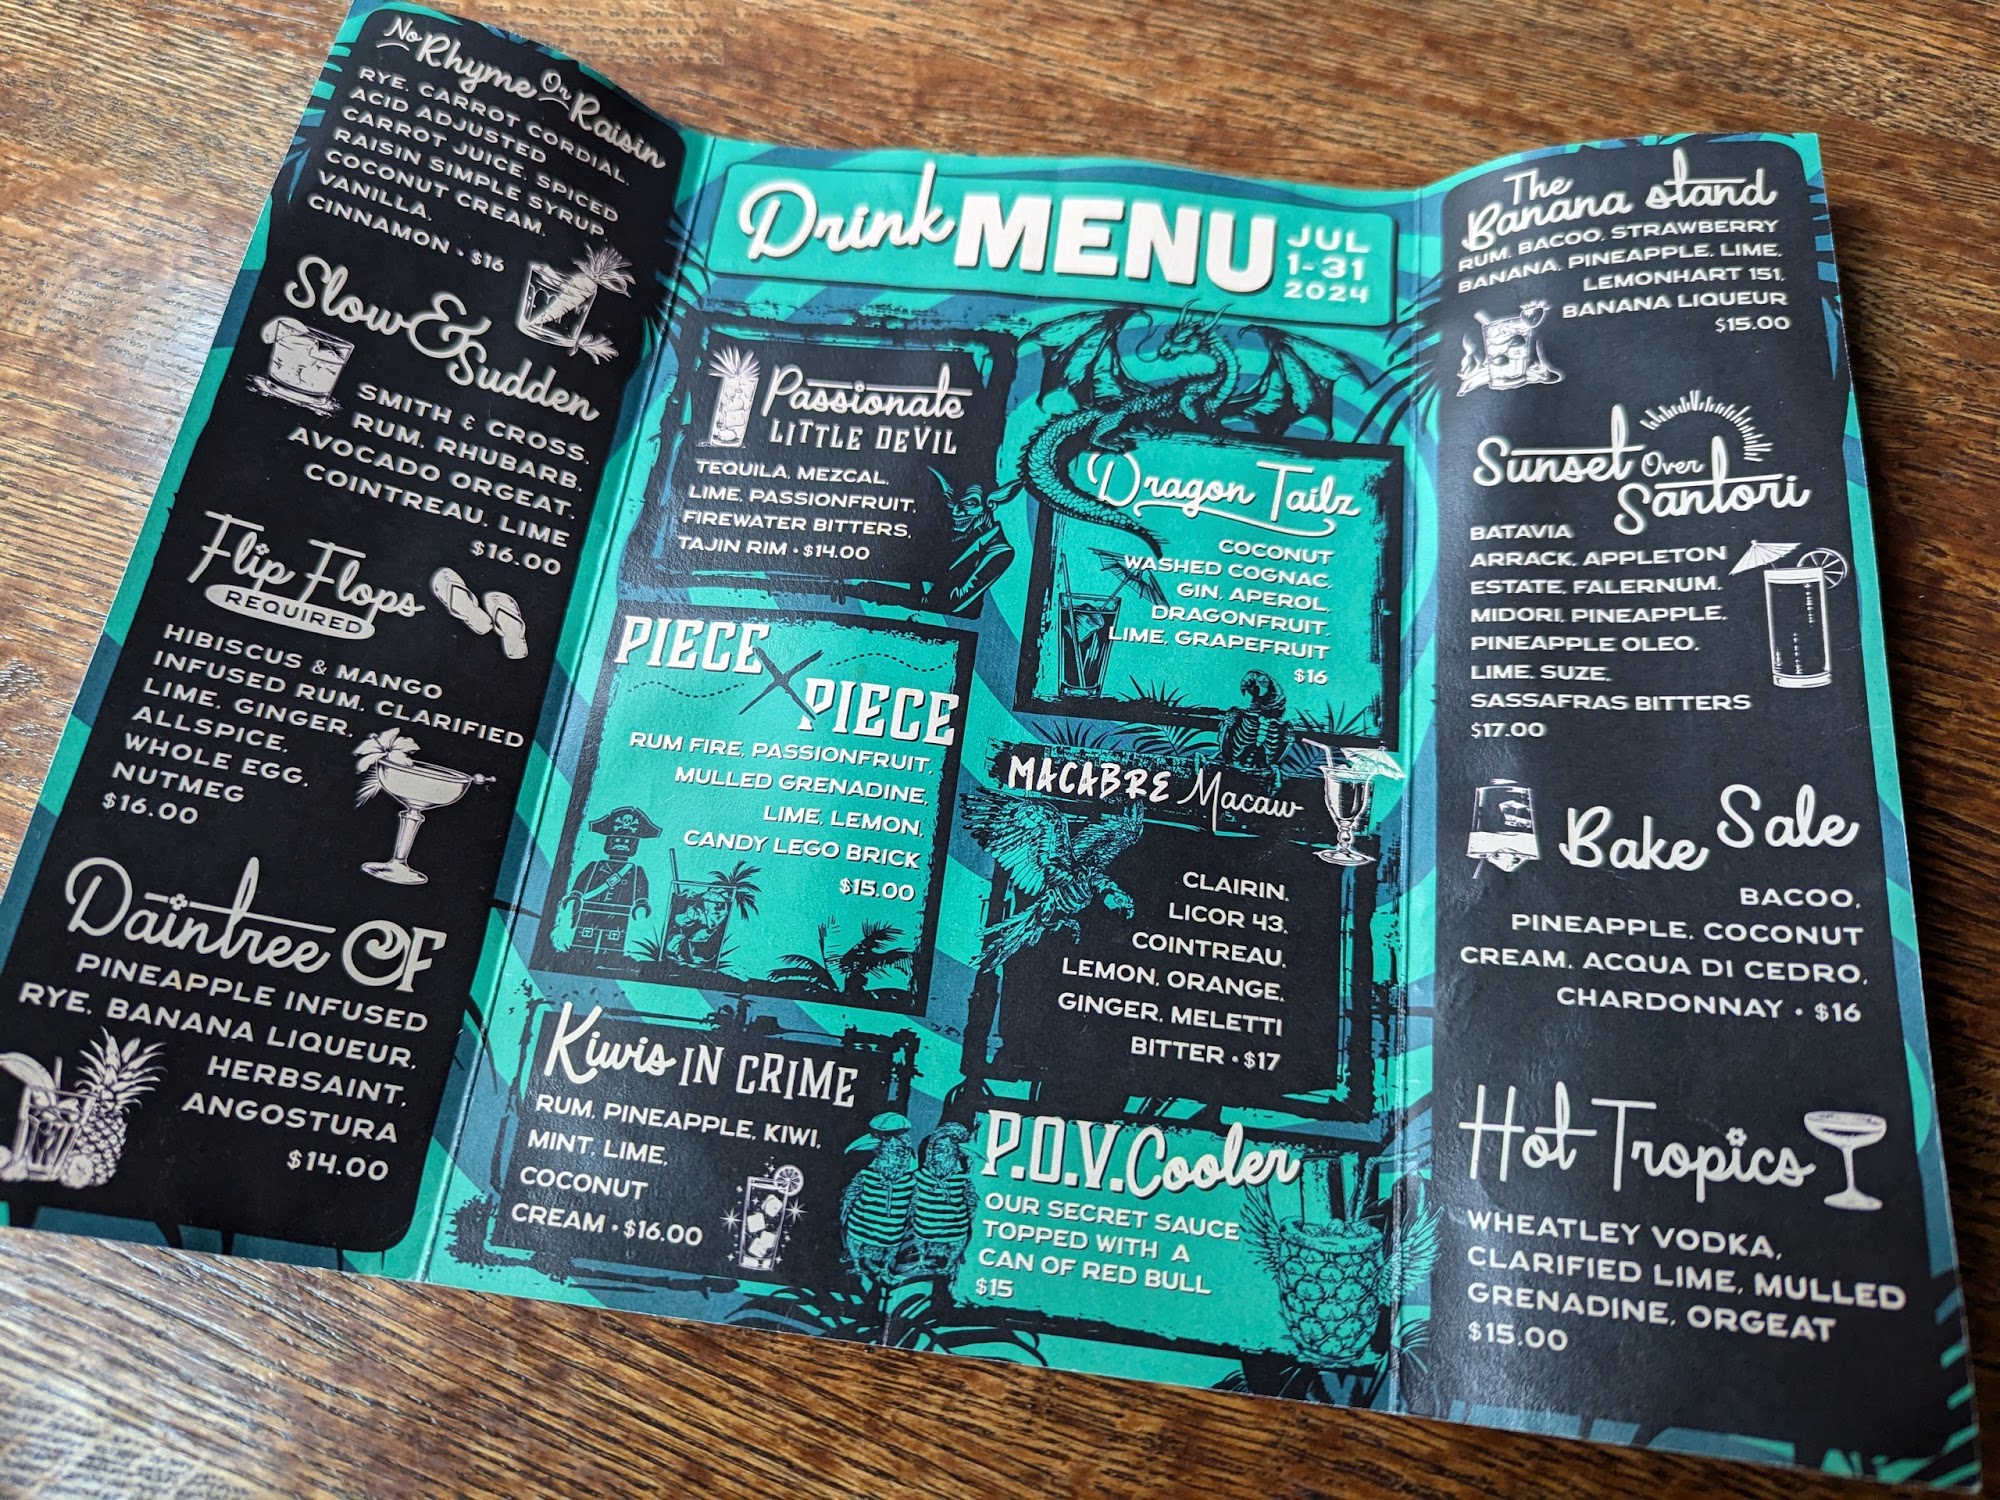 No Rhyme Or Raisin
RYE, CARROT CORDIAL,
ACID ADJUSTED
CARROT JUICE, SPICED
RAISIN SIMPLE SYRUP,
COCONUT CREAM,
VANILLA,
CINNAMON • $16
Slow &
Sudden
SMITH & CROSS,
RUM, RHUBARB,
AVOCADO ORGEAT,
COINTREAU, LIME
$16.00
Flip Flops
REQUIRED
HIBISCUS & MANGO
INFUSED RUM, CLARIFIED
LIME, GINGER,
ALLSPICE,
WHOLE EGG,
NUTMEG
$16.00
Daintree OF
PINEAPPLE INFUSED
RYE, BANANA LIQUEUR,
HERBSAINT,
ANGOSTURA
$14.00
Drink MENU
JUL
1-31
2024
Passionate
LITTLE DEVIL
TEQUILA, MEZCAL,
LIME, PASSIONFRUIT,
FIREWATER BITTERS,
TAJIN RIM • $14.00
Dragon Tailz
COCONUT
WASHED COGNAC,
GIN, APEROL,
DRAGONFRUIT,
LIME, GRAPEFRUIT
$16
PIECE
X PIECE
RUM FIRE, PASSIONFRUIT,
MULLED GRENADINE,
LIME, LEMON,
CANDY LEGO BRICK
$15.00
MACABRE Macaw
CLAIRIN,
LICOR 43,
COINTREAU,
LEMON, ORANGE,
GINGER, MELETTI
BITTER • $17
Kiwis IN CRIME
RUM, PINEAPPLE, KIWI,
MINT, LIME,
COCONUT
CREAM • $16.00
P.O.V. Cooler
OUR SECRET SAUCE
TOPPED WITH A
CAN OF RED BULL
$15
The
Banana Stand
RUM, BACOO, STRAWBERRY
BANANA, PINEAPPLE, LIME,
LEMONHART 151,
BANANA LIQUEUR
$15.00
Sunset Over
Santori
BATAVIA
ARRACK, APPLETON
ESTATE, FALERNUM,
MIDORI, PINEAPPLE,
PINEAPPLE OLEO,
LIME, SUZE,
SASSAFRAS BITTERS
$17.00
Bake Sale
BACOO,
PINEAPPLE, COCONUT
CREAM, ACQUA DI CEDRO,
CHARDONNAY • $16
Hot Tropics
WHEATLEY VODKA,
CLARIFIED LIME, MULLED
GRENADINE, ORGEAT
$15.00